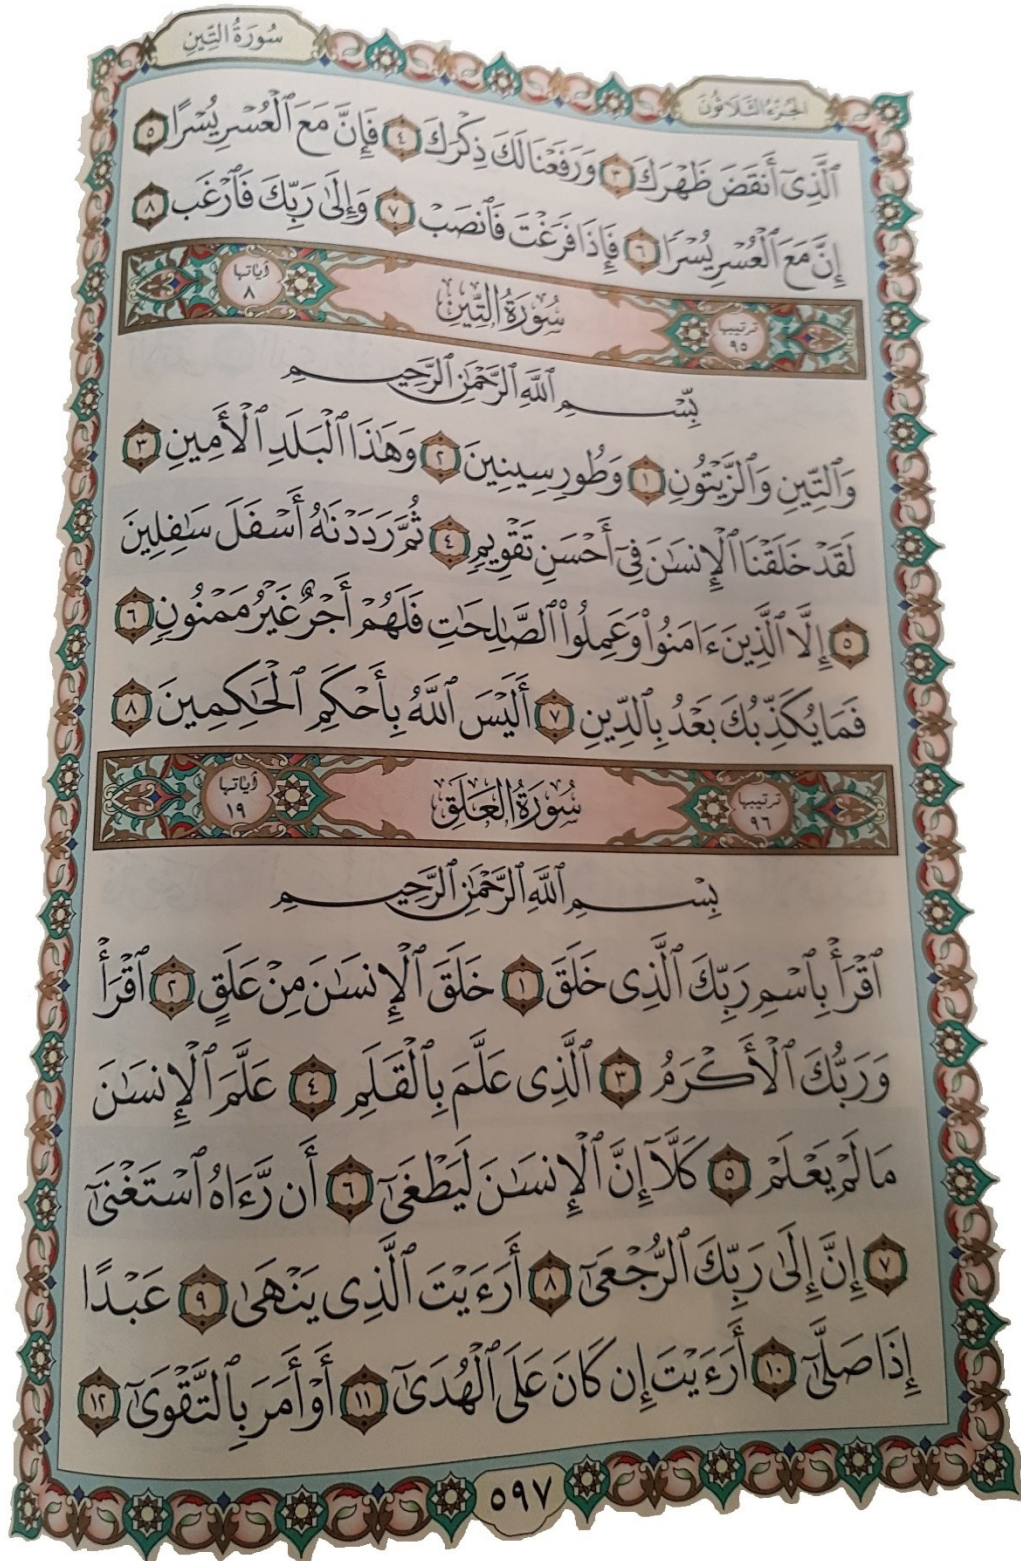 الجزء الثلاثون
سورة التين
ٱلَّذِىٓ أَنقَضَ ظَهْرَكَ ٣ وَرَفَعْنَا لَكَ ذِكْرَكَ ٤ فَإِنَّ مَعَ ٱلْعُسْرِ يُسْرًا ٥
إِنَّ مَعَ ٱلْعُسْرِ يُسْرًا ٦ فَإِذَا فَرَغْتَ فَٱنصَبْ ٧ وَإِلَىٰ رَبِّكَ فَٱرْغَب ٨
ترتيبها ٩٥ سُورَةُ التِّينِ آياتها ٨
بِسْمِ ٱللَّهِ ٱلرَّحْمَٰنِ ٱلرَّحِيمِ
وَٱلتِّينِ وَٱلزَّيْتُونِ ١ وَطُورِ سِينِينَ ٢ وَهَٰذَا ٱلْبَلَدِ ٱلْأَمِينِ ٣
لَقَدْ خَلَقْنَا ٱلْإِنسَٰنَ فِىٓ أَحْسَنِ تَقْوِيمٍ ٤ ثُمَّ رَدَدْنَٰهُ أَسْفَلَ سَٰفِلِينَ
٥ إِلَّا ٱلَّذِينَ ءَامَنُوا۟ وَعَمِلُوا۟ ٱلصَّٰلِحَٰتِ فَلَهُمْ أَجْرٌ غَيْرُ مَمْنُونٍ ٦
فَمَا يُكَذِّبُكَ بَعْدُ بِٱلدِّينِ ٧ أَلَيْسَ ٱللَّهُ بِأَحْكَمِ ٱلْحَٰكِمِينَ ٨
ترتيبها ٩٦ سُورَةُ العَلَقِ آياتها ١٩
بِسْمِ ٱللَّهِ ٱلرَّحْمَٰنِ ٱلرَّحِيمِ
ٱقْرَأْ بِٱسْمِ رَبِّكَ ٱلَّذِى خَلَقَ ١ خَلَقَ ٱلْإِنسَٰنَ مِنْ عَلَقٍ ٢ ٱقْرَأْ
وَرَبُّكَ ٱلْأَكْرَمُ ٣ ٱلَّذِى عَلَّمَ بِٱلْقَلَمِ ٤ عَلَّمَ ٱلْإِنسَٰنَ
مَا لَمْ يَعْلَمْ ٥ كَلَّآ إِنَّ ٱلْإِنسَٰنَ لَيَطْغَىٰٓ ٦ أَن رَّءَاهُ ٱسْتَغْنَىٰٓ
٧ إِنَّ إِلَىٰ رَبِّكَ ٱلرُّجْعَىٰٓ ٨ أَرَءَيْتَ ٱلَّذِى يَنْهَىٰ ٩ عَبْدًا
إِذَا صَلَّىٰٓ ١٠ أَرَءَيْتَ إِن كَانَ عَلَى ٱلْهُدَىٰٓ ١١ أَوْ أَمَرَ بِٱلتَّقْوَىٰٓ ١٢
٥٩٧